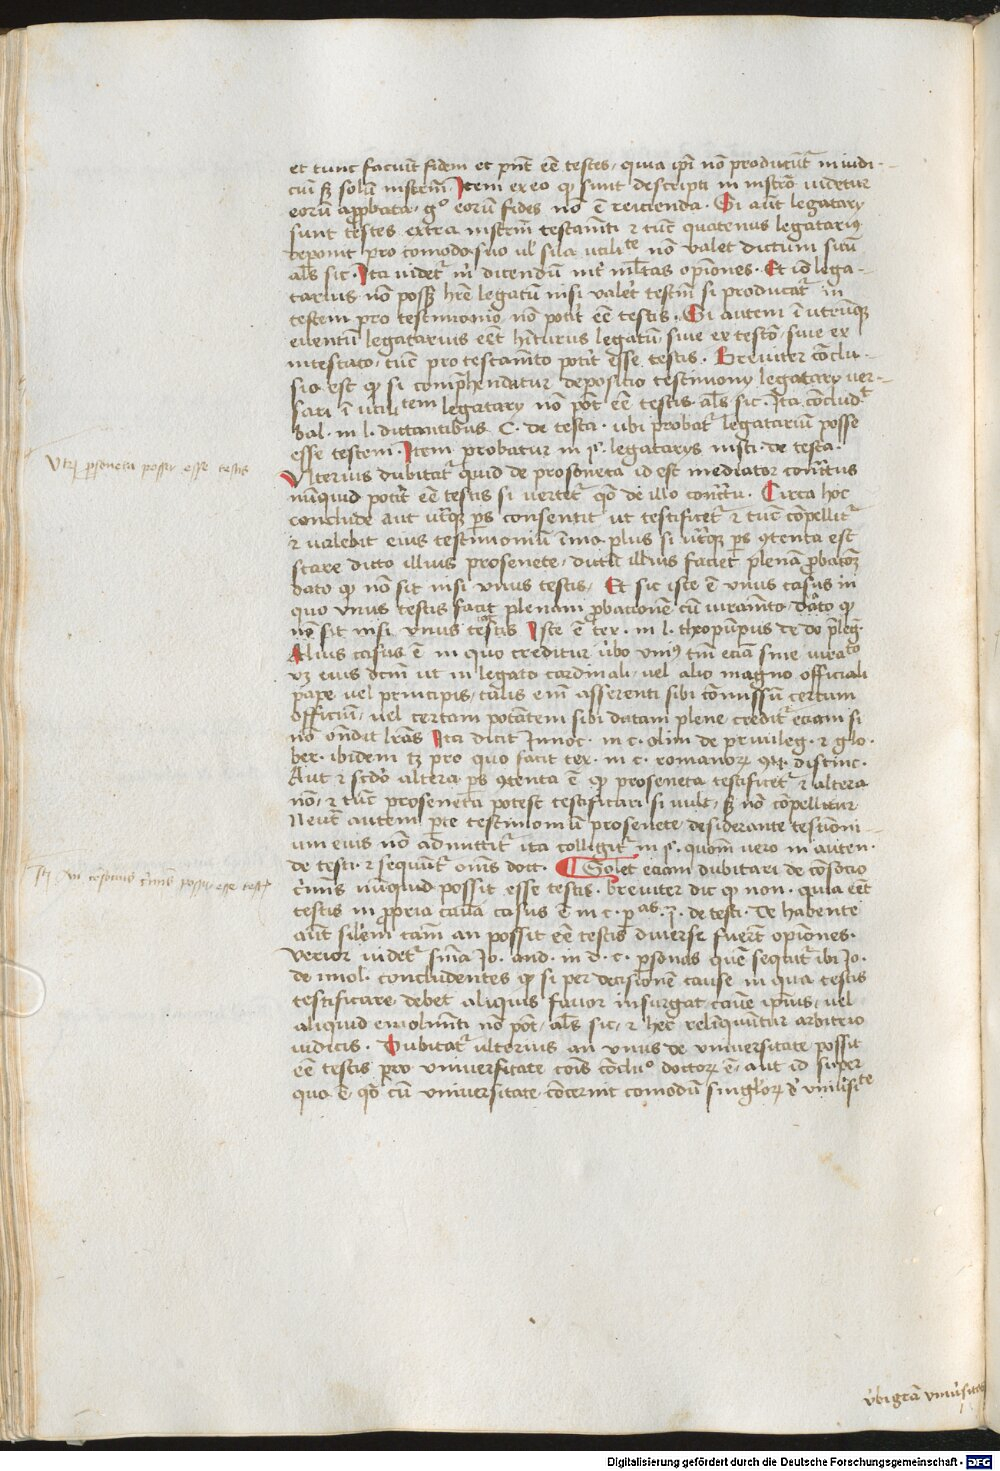 et tunc faciūt fidem et pn̄t eē testes, quia ip̄i nō producūt̄ in iudi-
ciū sꝫ solū instrm̄. Item ex eo ꝙ sunt descripti in instrō videtur
eorū ap̄probata. gͦ eorū fides nō ē reicienda. Si aūt legatarÿ
sunt testes extra instrm̄ testamēti ⁊ tūc quatenus legatariꝰ
deponit pro comodo suo uł sua utilite nō valet dictum suū
al̄s sic. Ita videt̄ mͥ dicendū int̄ ml̄tas opiōnes. Et iō lega-
tarius nō possꝫ hr̄e legatū nisi valeꝛ̄ testm̄ si producat̄ in
testem pro testimonio nō poteꝛ̄it eē testis. Si autem ī utrūqꝫ
euentū legatarius eēt hīturus legatū, siue ex testō, siue ex
intestato, tūc pro testamēto poterit esse testis. Breuiter cōclu-
sio est ꝙ si comp̄henditur depositio testimonÿ legatarÿ ver-
sari ī utilitem legatarÿ nō pōt eē testis. al̄s sic. Ita cōcludit
bal. in l. dictantibus C. de testa. ubi probat̄ legatariū posse
esse testem. Item probatur in §. legatarÿs insti. de testa.
Vtrꝫ p̄soneta possit esse testis
Vlterius dubitat̄ quid de proseneta id est mediator cont̄ctus
nūquid poterit eē testis si vertet̄ qō de illo cont̄ctu. Circa hoc
conclude aut ut̄qꝫ ps̄ consentit ut testificet̄ ⁊ tūc cōpellit̄
⁊ valebit eius testimoniū īmo plus si ut̄qꝫ ps̄ ꝯtenta est
stare dicto illius prosenete, dictū illius faciet plenā ꝓbatōꝫ
dato ꝙ non sit nisi vnus testis. Et sic iste ē vnus casus in
quo vnus testis facit plenam ꝓbationē cū iuramēto, dato ꝙ
nō sit nisi vnus testis Iste ē tex. in l. theopūpus de do p̄leg.
Alius casus ē in quo creditur v̄bo vniꝰ tm̄ eciā sine iurato
vꝫ eius dcm̄ ut in legato cardinali, uel alio magno officiali
pape uel principis, talis em̄ asserenti sibi cōmissū certum
officiū, uel certam potātem sibi datam plene credit̄ eciam si
nō on̄dit lr̄as Ita dicit Innoc. in c. olim de priuileg. ⁊ glo.
ber. ibidem tꝫ pro quo facit tex. in c. romanoꝝ distinc.
Aut ⁊ scdō altera ps̄ ꝯtenta ē ꝙ proseneta testificet̄ ⁊ altera
nō, ⁊ tūc proseneta potest testificari si vult, sꝫ nō cōpellitur
Neut̄ autem p̄te testimoniū prosenete desiderante testimoni-
um eius nō admittit̄ ita colligit̄ in §. quoniā vero in auten.
de testi. ⁊ sequūt̄ om̄s doct. ¶ Solet eciam dubitari de cōsocio
An cōsocius c̄mis possit esse testis
c̄mīs nūquid possit esse testis. breuiter dic ꝙ non. quia eēt
testis in ꝓpria causa casus ē in c. ꝑas. 2. de testi. De habente
aūt silem cām an possit eē testis diuerse fuer̄t opiōnes.
Verior videt̄ sn̄ia Jo. and. in d. c. ꝑsonas quē sequit̄ ibi Jo.
de imol. concludentes ꝙ si per decisionē cause in qua testis
testificare debet aliquis fauor insurgat cause ip̄ius, uel
aliquid emolumēti nō pōt, al̄s sic, ⁊ hec relinquūtur arbitrio
iudicis. Dubitat̄ vlterius an vnus de vniuersitate possit
eē testis pro vniuersitate cōis cōcluͦ doctoꝝ ē, aut id super
quo ē qō cū vniuersitate cōcernit comodū singłoꝝ d̄ vniūsite
v̄bi grā vniūsitas
Digitalisierung gefördert durch die Deutsche Forschungsgemeinschaft - DFG